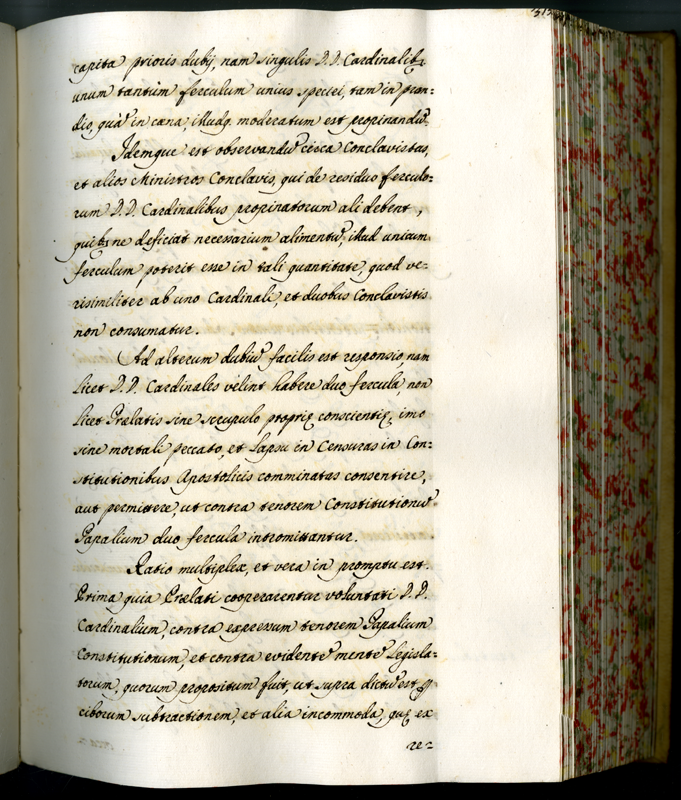 capita prioris dubij, nam singulis D.D. Cardinalibꝫ
unum tantùm ferculum unius speciei, tam in pran-
dio, quā in cæna, illudq. moderatum est propinandū.
Idemque est observandū circa Conclavistas,
et alios Ministros Conclavis, qui de residuo ferculo=
rum D.D. Cardinalibus propinatorum ali debent,
quibꝫ ne deficiat necessarium alimentū, illud unicum
ferculum poterit esse in tali quantitate, quod ve=
risimiliter ab uno Cardinali, et duobus Conclavistis
non consumatur.
Ad alterum dubiū facilis est responsio, nam
licet D.D. Cardinales velint habere duo fercula, non
licet Prælatis sine scrupulo proprię conscientię, imo
sine mortali peccato, et lapsu in Censuras in Con=
stitutionibus Apostolicis comminatas consentire,
aut permittere, ut contra tenorem Constitutionū
Papalium duo fercula intromittantur.
Ratio multiplex, et vera in promptu est.
Prima quia Prælati cooperarentur voluntati D.D.
Cardinalium, contra expressum tenorem Papalium
Constitutionum, et contra evidentē mentē Legisla=
torum, quorum propositum fuit, ut supra dictū est, ꝑ
ciborum subtractionem, et alia incommoda, quę ex
re=